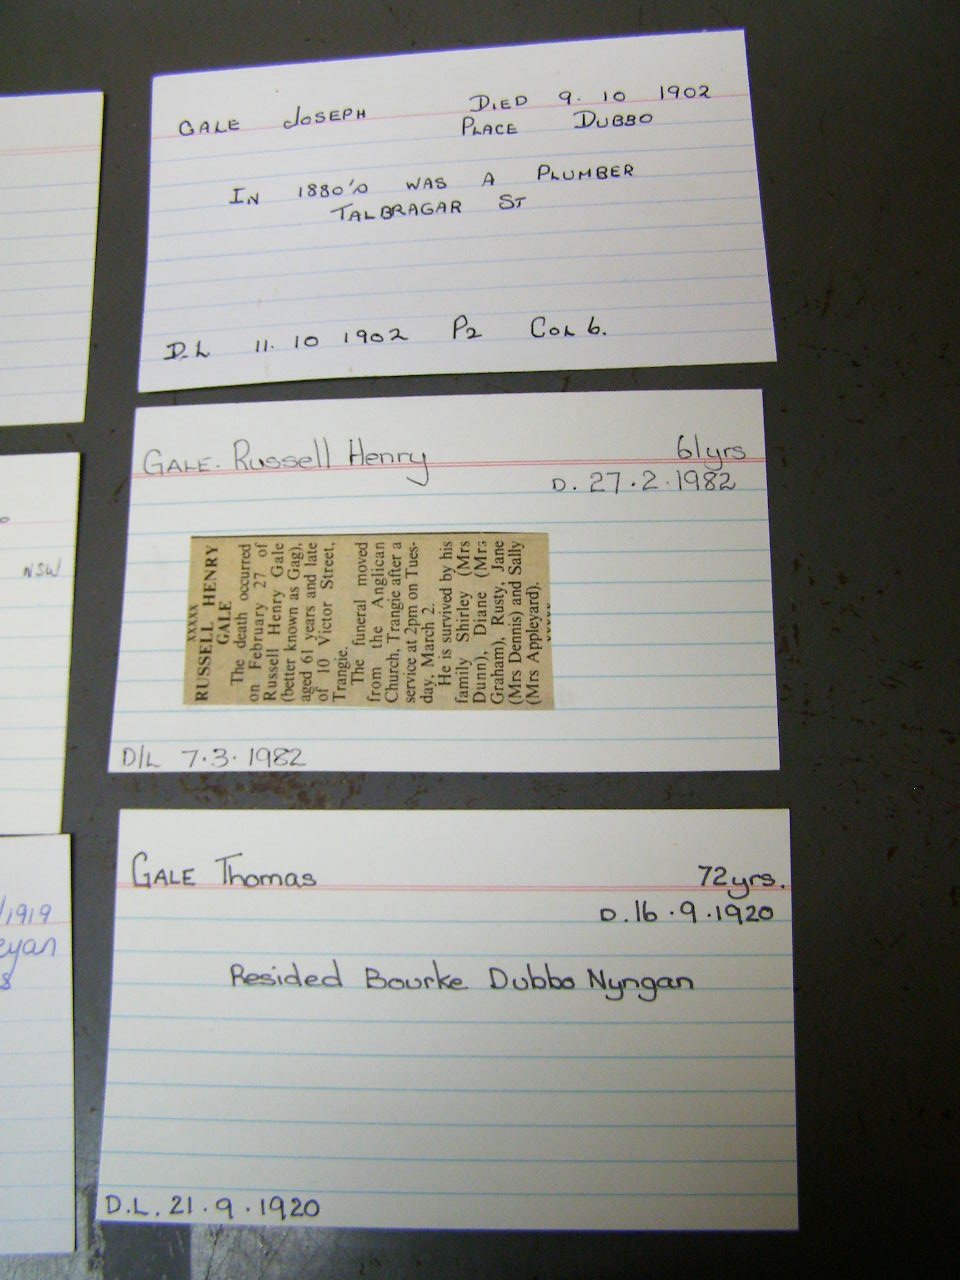 GALE JOSEPH DIED 9. 10 1902
PLACE DUBBO
IN 1880's WAS A PLUMBER
TALBRAGAR ST
D.L 11. 10 1902 P2 COL 6.
GALE. Russell Henry 61yrs
D. 27.2.1982
xxxxx
RUSSELL HENRY
GALE
The death occurred
on February 27 of
Russell Henry Gale
(better known as Gag),
aged 61 years and late
of 10 Victor Street,
Trangie.
The funeral moved
from the Anglican
Church, Trangie after a
service at 2pm on Tues-
day, March 2.
He is survived by his
family Shirley (Mrs
Dunn), Diane (Mrs
Graham), Rusty, Jane
(Mrs Dennis) and Sally
(Mrs Appleyard).
D/L 7.3.1982
GALE Thomas 72yrs.
D.16.9.1920
Resided Bourke Dubbo Nyngan
D.L. 21.9.1920
NSW
/1919
eyan
8